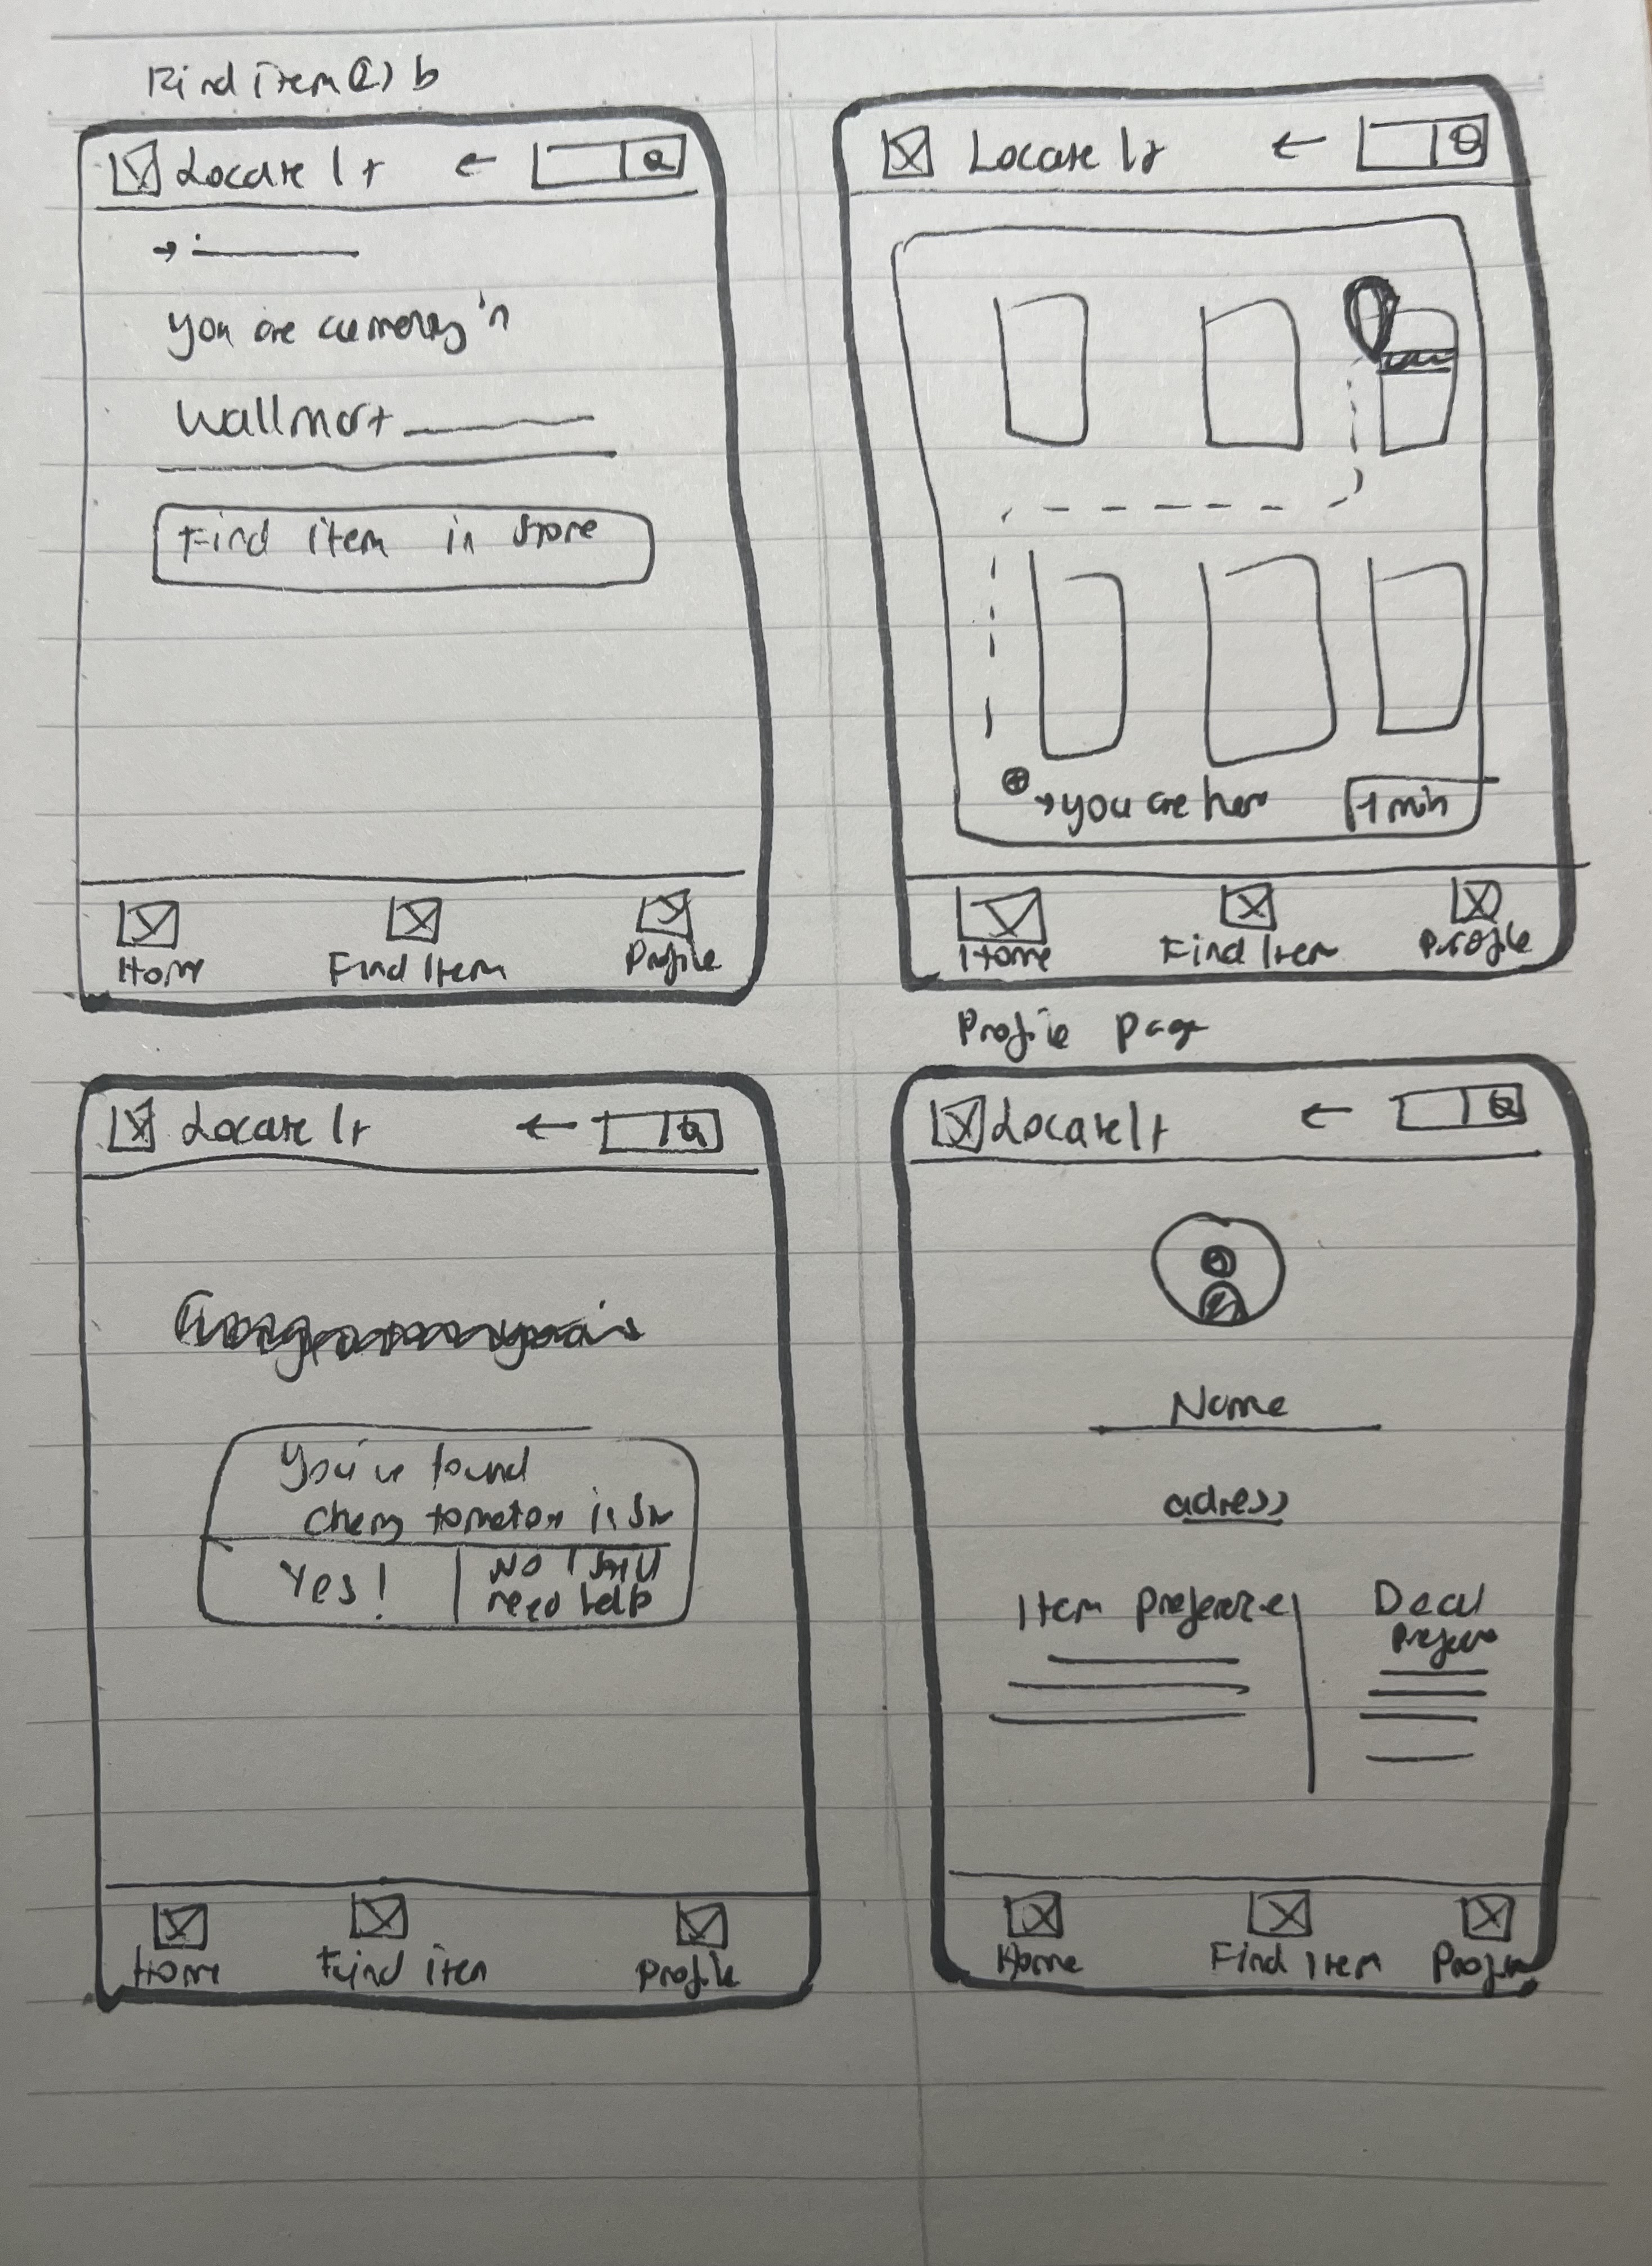 Find item (2) b
Locate It
you are currently in
Wallmart
Find item in store
Home
Find Item
Profile
Locate It
you are here
1 min
Home
Find Item
Profile
Locate It
You've found
cherry tomatoes in
Yes!
No I still
need help
Home
Find item
Profile
Profile Page
Locate It
Name
adress
Item preference
Deal
Home
Find Item
Profile